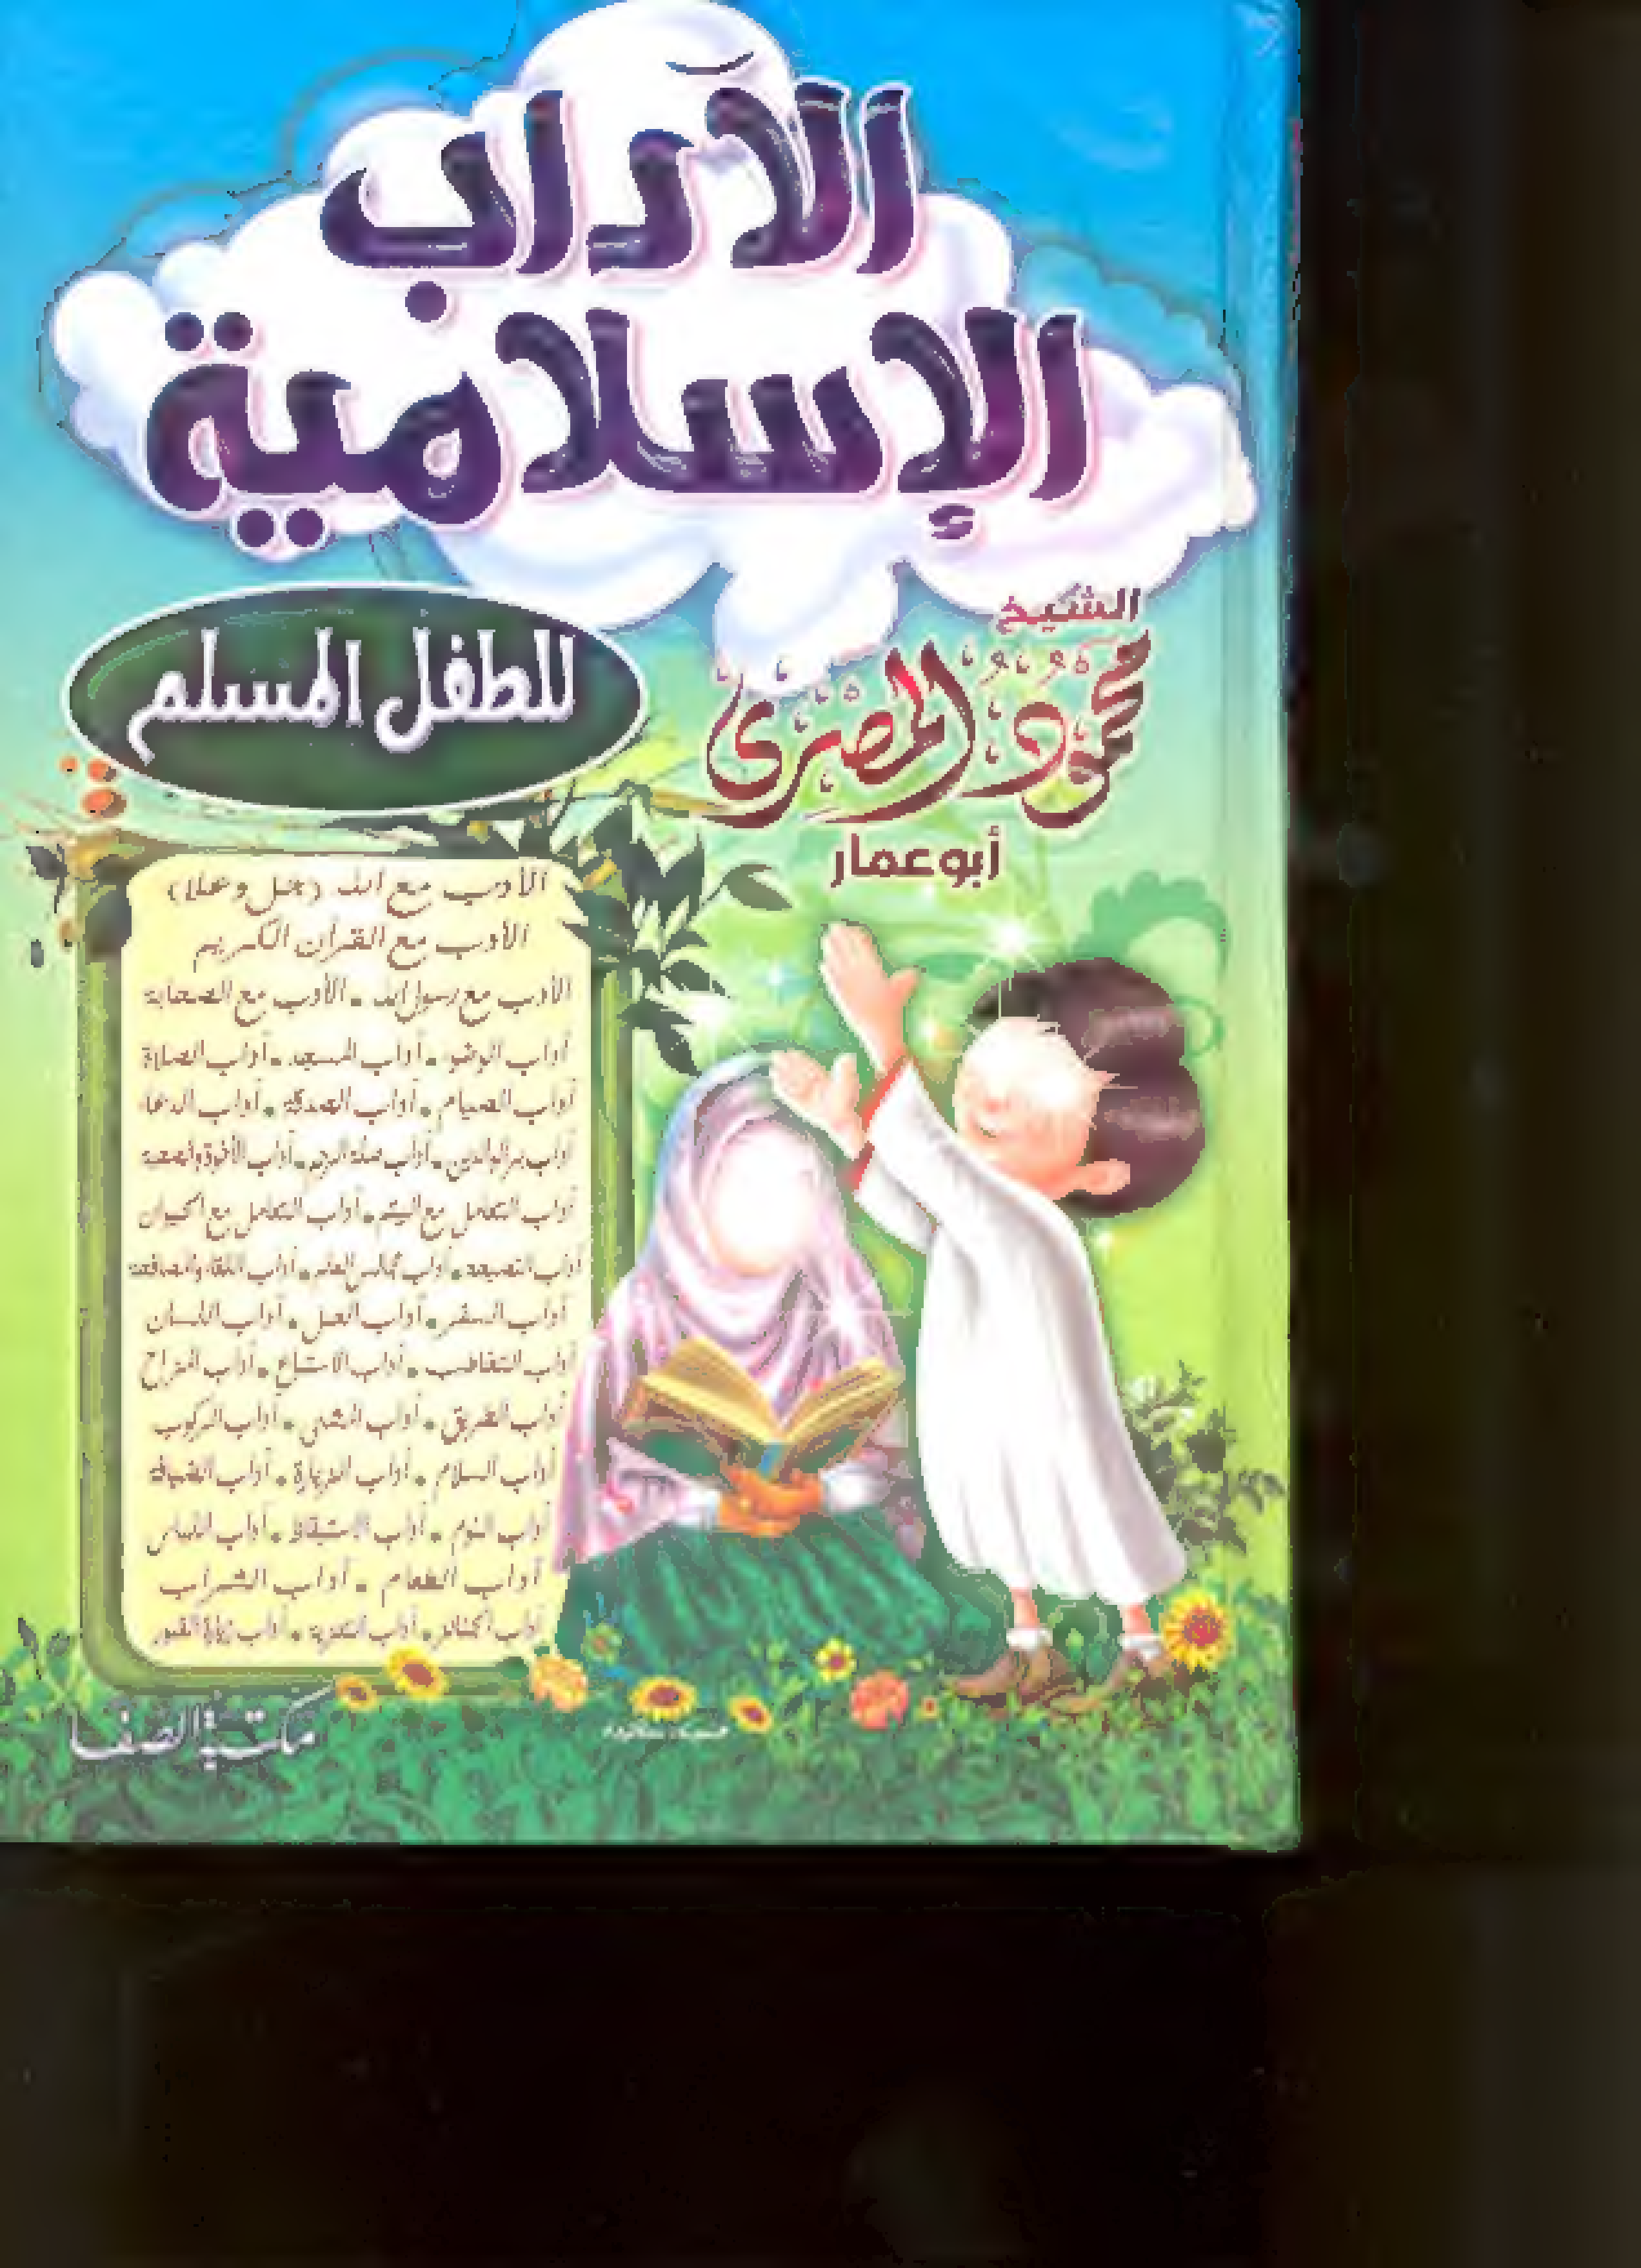 الآداب
الإسلامية
للطفل المسلم
الشيخ
محمود المصرى
أبو عمار
الأدب مع الله (جل وعلا)
الأدب مع القرآن الكريم
الأدب مع رسول الله . الأدب مع الصحابة
آداب الوضوء . آداب المسجد . آداب الصلاة
آداب الصيام . آداب الصدقة . آداب الدعاء
آداب بر الوالدين . آداب صلة الرحم . آداب الأخوة والصحبة
آداب التعامل مع البيئة . آداب التعامل مع الحيوان
آداب النصيحة . آداب مجالس العلم . آداب اللقاء والمصافحة
آداب السفر . آداب العمل . آداب اللسان
آداب التخاطب . آداب الاستماع . آداب المزاح
آداب الطريق . آداب المشى . آداب الركوب
آداب السلام . آداب الزيارة . آداب الضيافة
آداب النوم . آداب الاستيقاظ . آداب اللباس
آداب الطعام . آداب الشراب
آداب الجنائز . آداب التعزية . آداب زيارة القبور
مكتبة الصفا